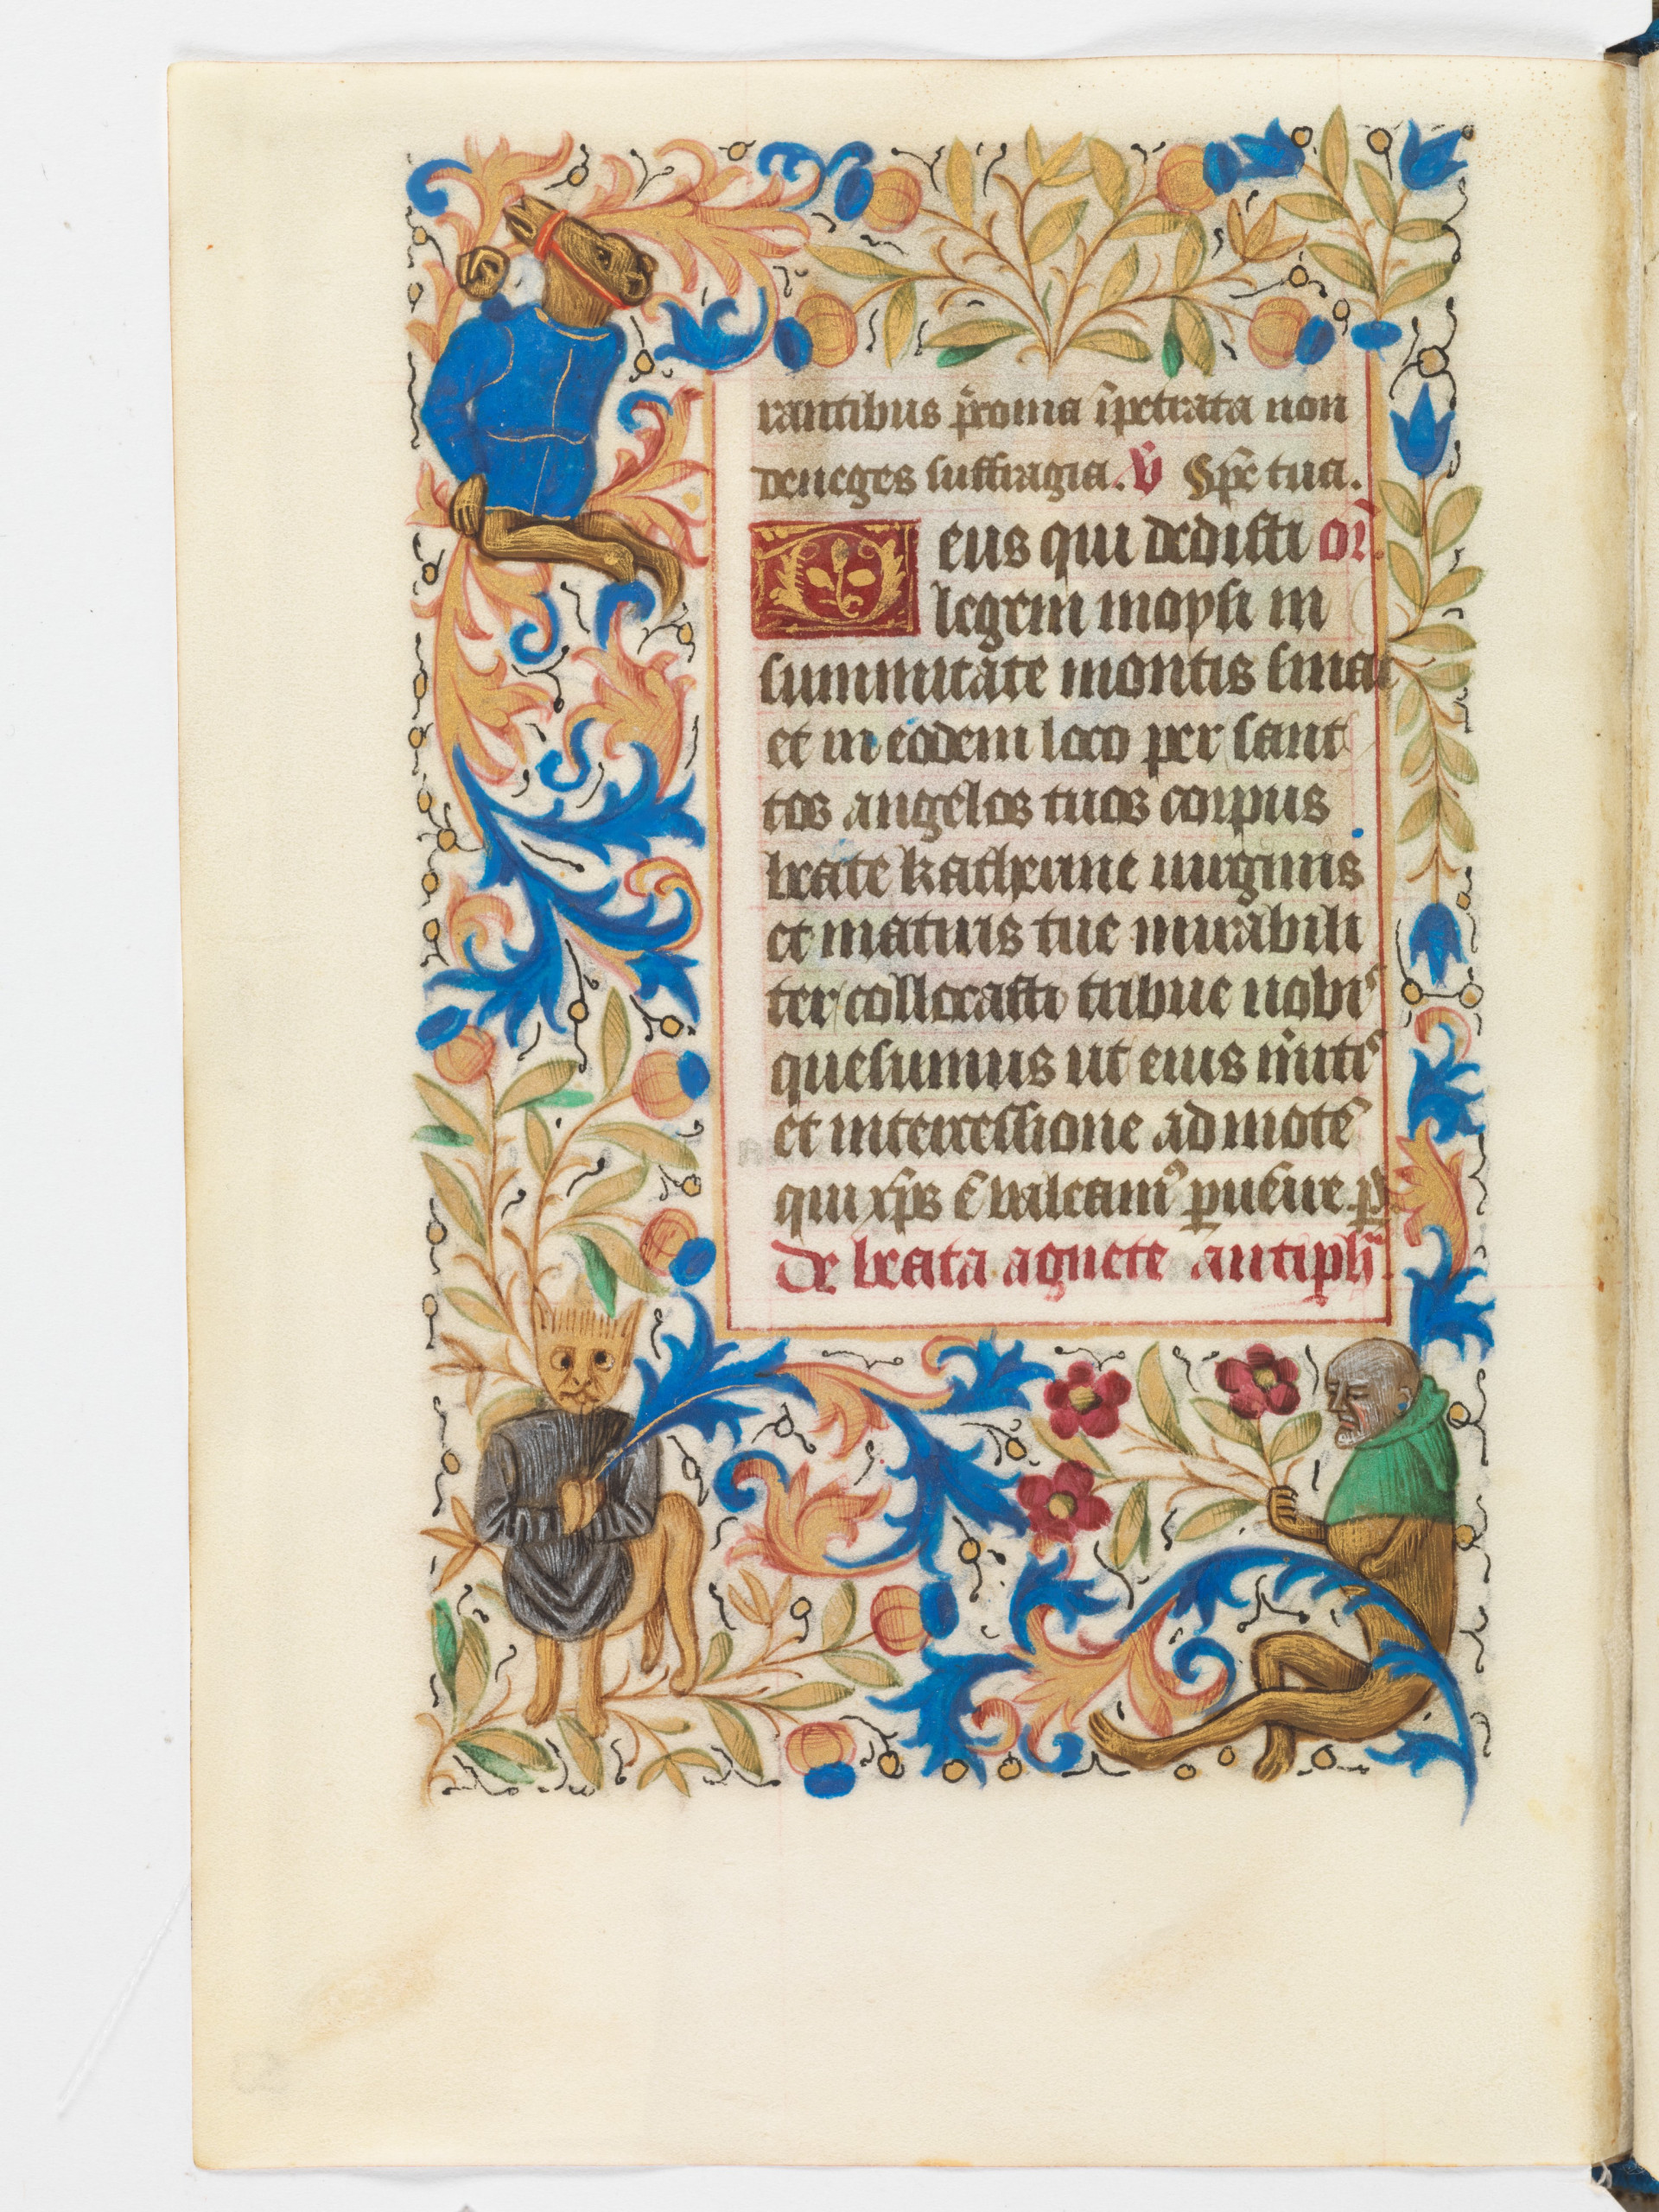 rantibus p̄roma īpetrata non
deneges suffragia. V̄ Sp̄e tua.
Deus qui dedisti or̄.
legem moysi in
summitate montis sinai
et in eodem loco per sanc
tos angelos tuos corpus
beate katherine uirginis
et martiris tue mirabili
ter collocasti tribue nobis
quesumus ut eius m̄itis
et intercessione ad motē
qui xp̄s ē valeamꝰ puēire. p̄
De beata agnete antiph̄.